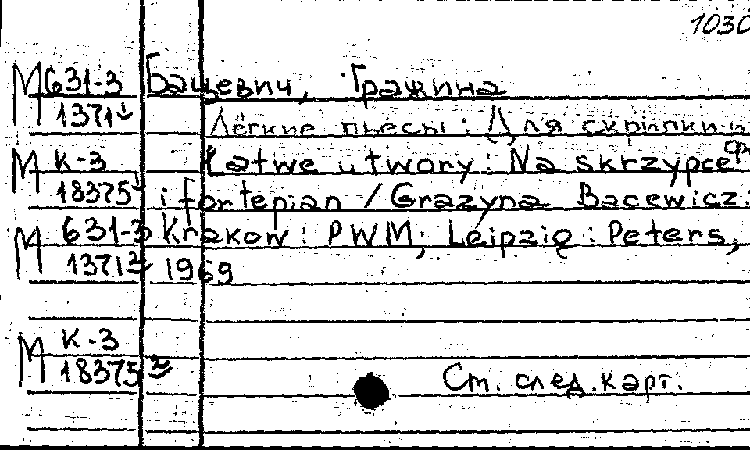 1030
М 631-3 Бацевич, Гражина
1371
Лёгкие пьесы: Для скрипки и
М К-3 Łatwe utwory: Na skrzypce
18375 i fortepian / Grażyna Bacewicz.
М 631-3 Kraków: PWM; Leipzig: Peters,
1371 1969
М К-3
18375
См. след. карт.